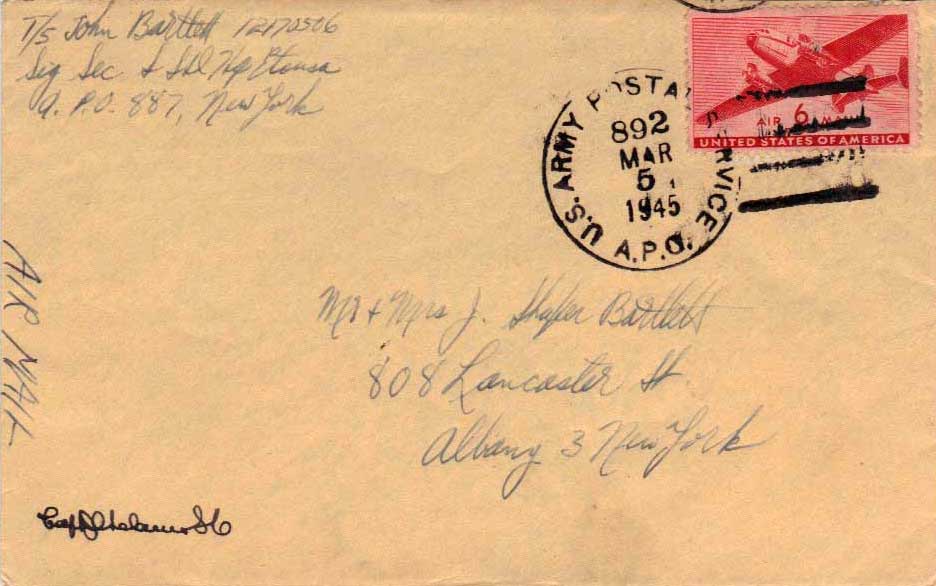 T/5 John Bartlett 12170506
Sig Sec Hq Etousa
A. P.O. 887, New York
U.S. ARMY POSTAL SERVICE
892
MAR
5
1945
A.P.O.
AIR 6¢ MAIL
UNITED STATES OF AMERICA
AIR MAIL
Mr + Mrs J. Shafer Bartlett
808 Lancaster St.
Albany 3 New York